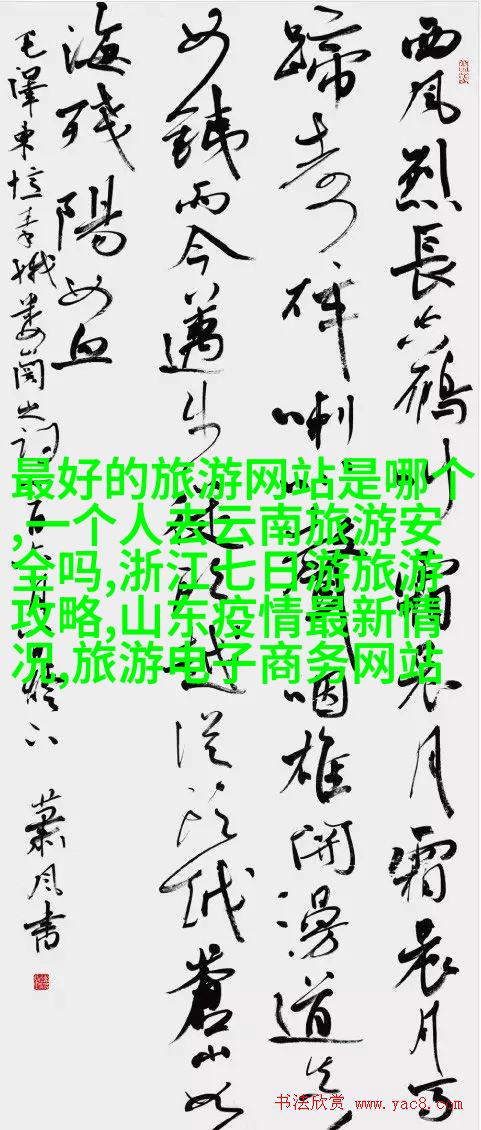 西风烈長空雁叫霜晨月霜晨月馬
蹄声碎喇叭聲咽雄関漫道真
如鐵而今邁步從頭越從頭越蒼山如
海残陽如血
毛澤東憶秦娥娄
關之詞
萧风書
最好的旅游网站是哪个
,一个人去云南旅游安
全吗,浙江七日游旅游
攻略,山东疫情最新情
况,旅游电子商务网站
书法欣赏 www.yac8.com